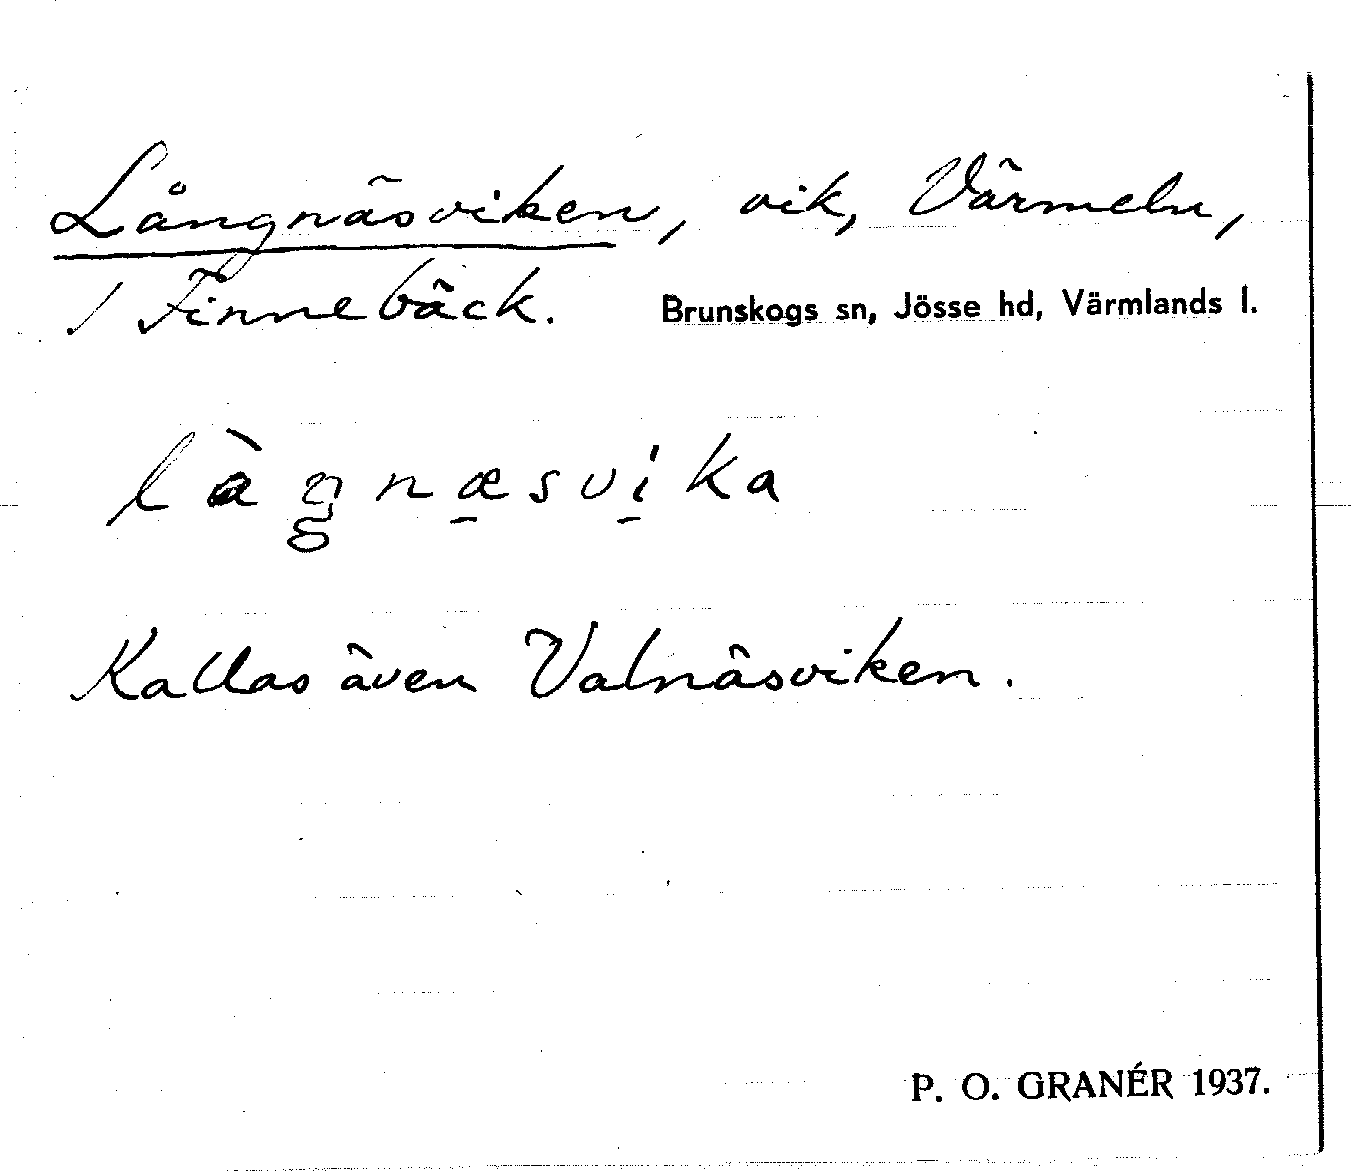 Långnäsviken, vik, Värmeln,
/ Finnebäck. Brunskogs sn, Jösse hd, Värmlands l.
làgnæ̱svi̱ka
Kallas även Valnäsviken.
P. O. GRANÉR 1937.